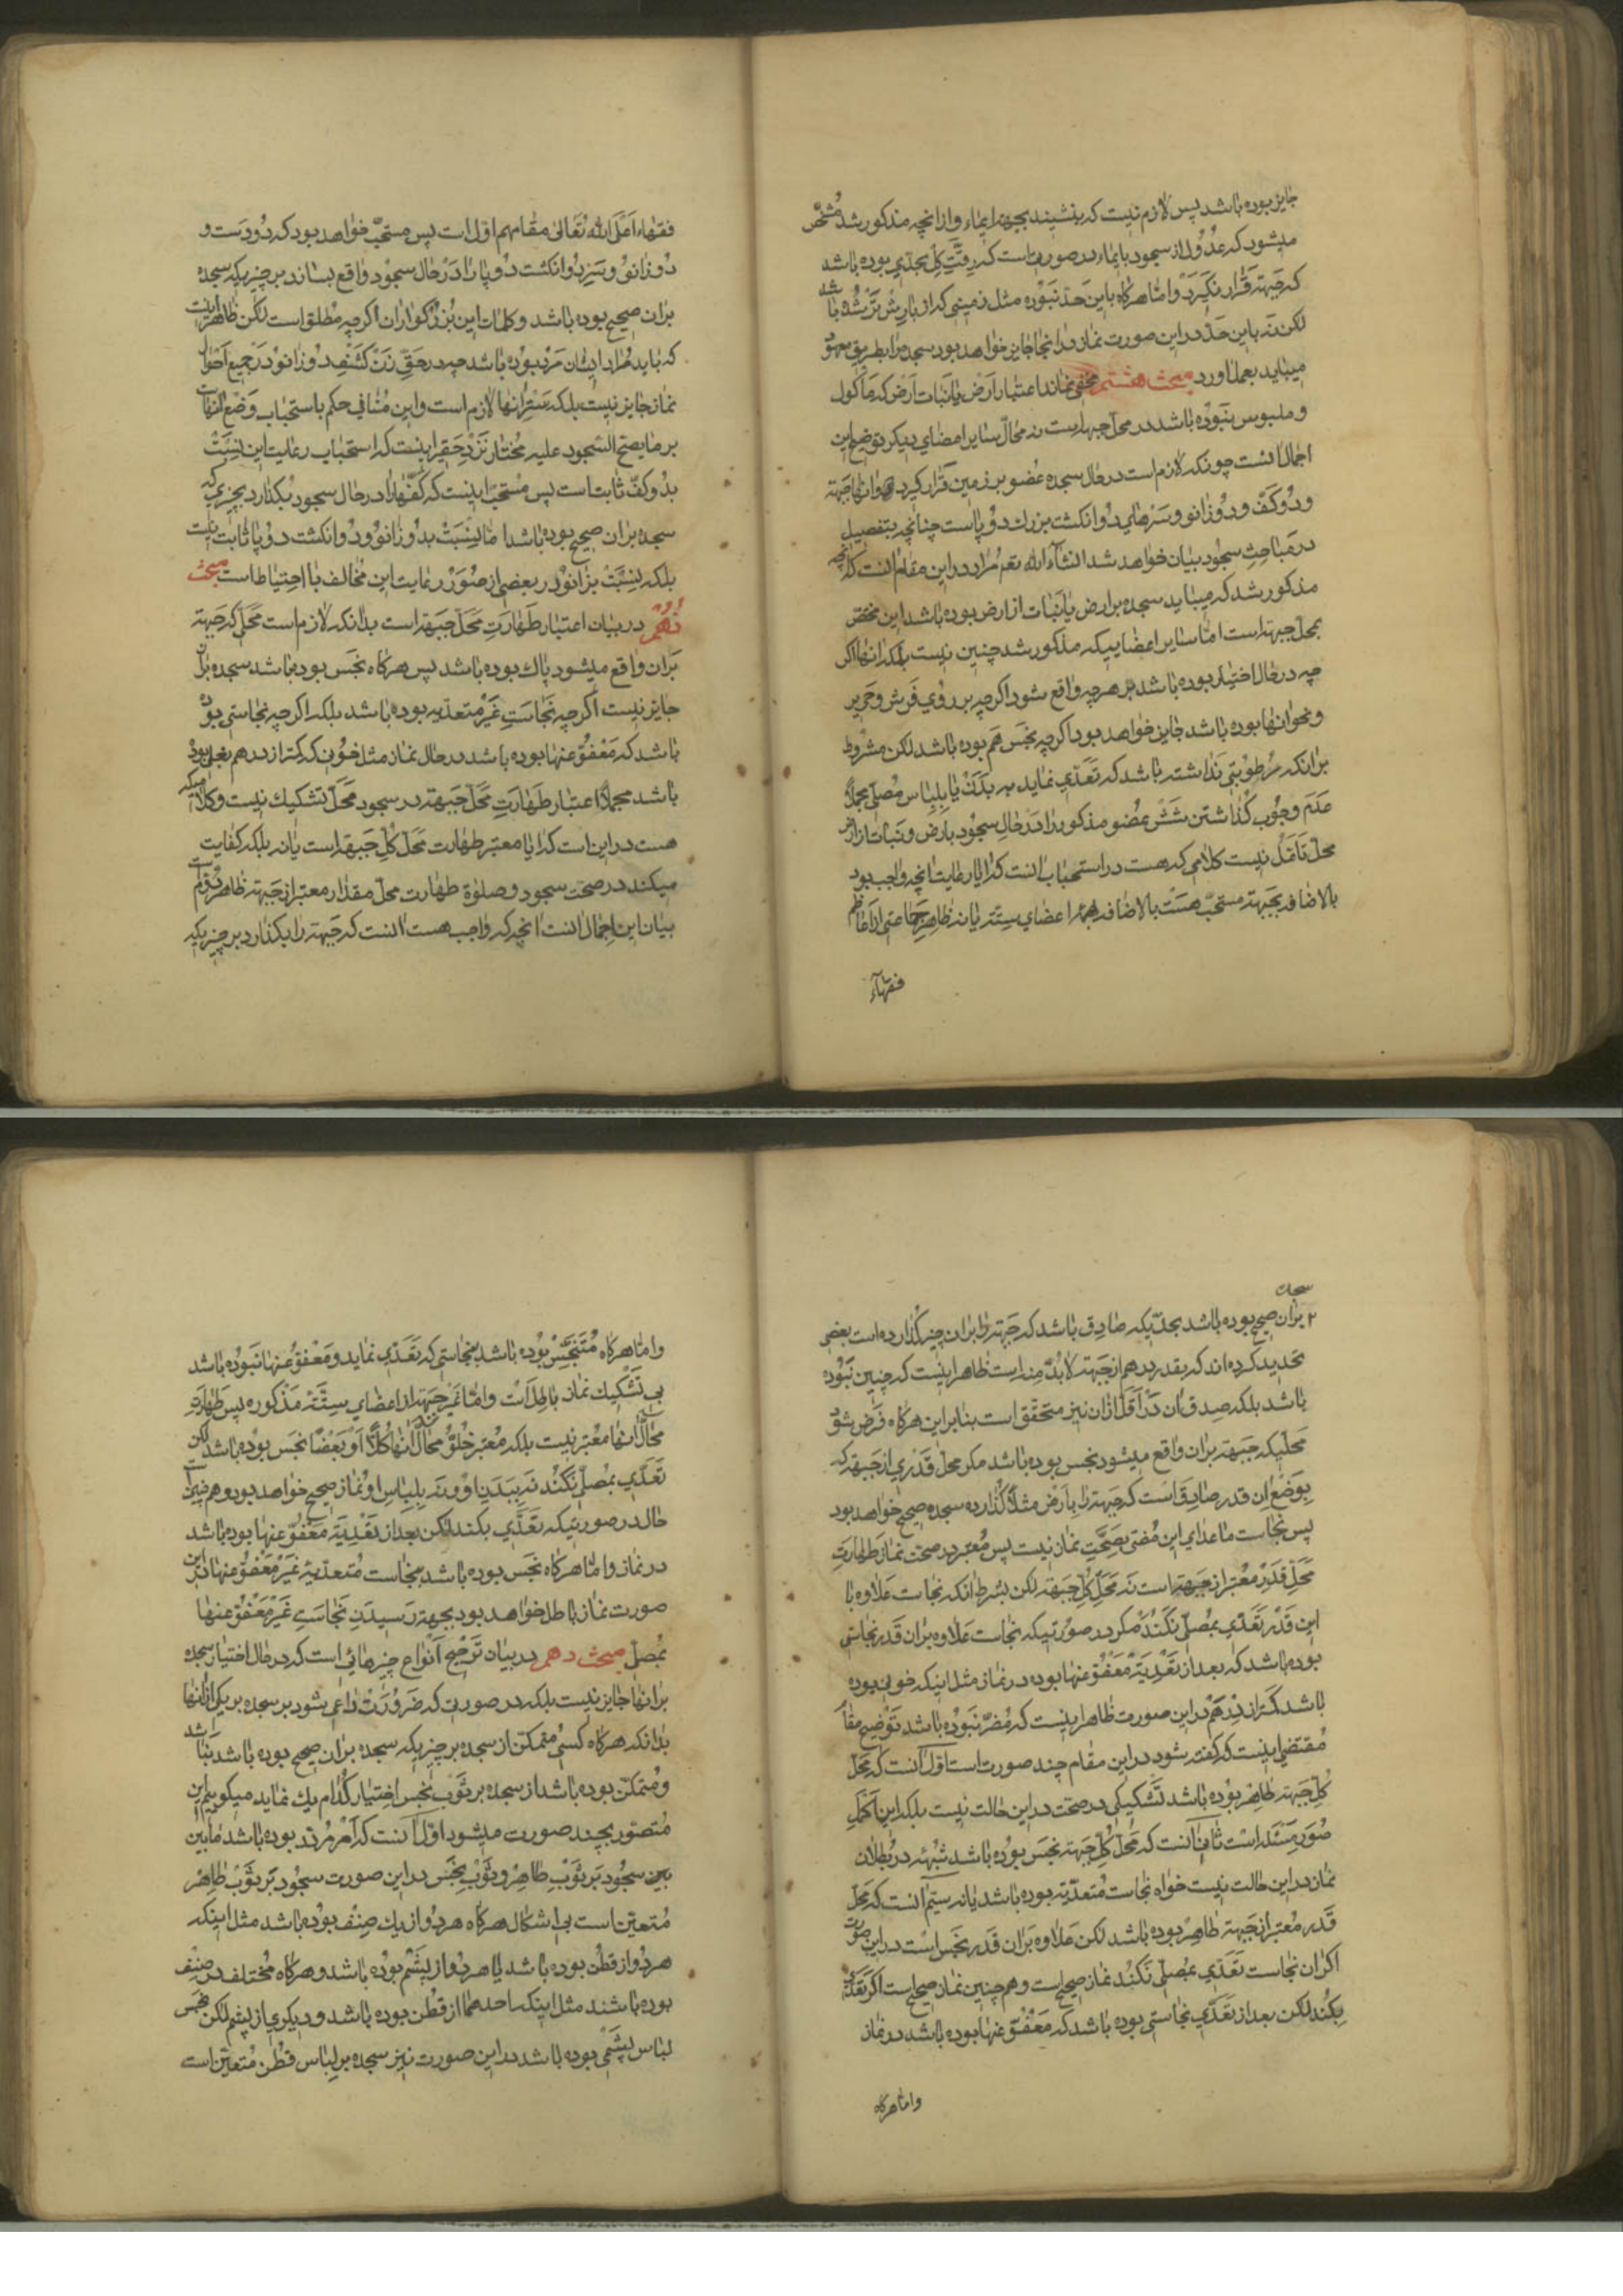 جایز بوده باشد پس لازم نیست که بنشیند بجهة ایماء و از انچه مذکور شد مشخّص
میشود که عدول از سجود بایماء در صورتیست که رقّت کِل بحدّی بوده باشد
که جبهة قرار نگیرد و امّا هرگاه باین حدّ نبوده مثل زمینی که از بارش تر شده باشد
لکن نه باین حدّ در این صورت نماز در انجا جایز خواهد بود سجده را بطریق معهود
میباید بعمل اورد مبحث هشتم مخفی نماند اعتبار ارض یا نبات ارض که ماکول
و ملبوس نبوده باشد در محل جبهه است نه محالّ سایر اعضای دیگر توضیح این
اجمال انست چونکه لازم است در حال سجده عضو بر زمین قرار گیرد و انها جبهة
و دو کف و دو زانو و سرهای دو انکشت بزرك دو پا است چنانچه بتفصیل
در مباحث سجود بیان خواهد شد انشاء الله تعم مراد در این مقام انست که انچه
مذکور شد که میباید سجده بر ارض یا نبات از ارض بوده باشد این مختص
بمحل جبهة است امّا سایر اعضاییکه مذکور شد چنین نیست بلکه انها اگر
چه در حال اختیار بوده باشد بر هر چه واقع شود اگر چه بر روی فرش و حریر
و نحو انها بوده باشد جایز خواهد بود اگر چه نجس هم بوده باشد لکن مشروط
بر انکه رطوبتی نداشته باشد که تعدّی نماید به بدن یا بلباس مصلّی مجملا
عدم وجوب گذاشتن شش عضو مذکور را در حال سجود بارض و نبات از ارض
محل تامّل نیست کلامی که هست در استحباب انست که ایا رعایت انچه واجب بود
بالاضافه بجبهة مستحبّ هست بالاضافه باعضای ستّه یا نه ظاهر جماعتی از اعاظم
فقهآء
فقهاء اعلی الله تعالی مقامهم اوّل است پس مستحبّ خواهد بود که دو دست و
دو زانو و سر دو انکشت دو پا را در حال سجود واقع بسازد بر چیزیکه سجده
بر ان صحیح بوده باشد و کلمات این بزرگواران اگر چه مطلق است لکن ظاهر اینست
که باید مراد ایشان مرد بوده باشد چه در حقّ زن کشف دو زانو در جمیع احوال
نماز جایز نیست بلکه ستر انها لازم است و این منافی حکم باستحباب وضع انهاست
بر ما یصحّ السّجود علیه مختار نزد حقیر اینست که استحباب رعایت این نسبت
بدو کفّ ثابت است پس مستحبّ اینست که کفّها را در حال سجود بگذارد بچیزی که
سجده بر ان صحیح بوده باشد امّا نسبت بدو زانو و دو انکشت دو پا ثابت نیست
بلکه نسبت بزانو در بعضی از صور رعایت این مخالف با احتیاط است مبحث
نهم در بیان اعتبار طهارت محلّ جبهة است بدانکه لازم است محلّی که جبهة
بر ان واقع میشود پاك بوده باشد پس هرگاه نجس بوده باشد سجده بر ان
جایز نیست اگر چه نجاست غیر متعدّیه بوده باشد بلکه اگر چه نجاستی بوده
باشد که معفوّ عنها بوده باشد در حال نماز مثل خونی که کمتر از درهم بغلی بوده
باشد مجملا اعتبار طهارت محلّ جبهة در سجود محلّ تشکیك نیست و کلامیکه
هست در این است که ایا معتبر طهارت محلّ کلّ جبهة است یا نه بلکه کفایت
میکند در صحّت سجود و صلوة طهارت محلّ مقدار معتبر از جبهة ظاهر دوّم است
بیان این اجمال انست انچه که واجب هست انست که جبهة را بگذارد بر چیزیکه
سجده
بر ان صحیح بوده باشد بحدّیکه صادق باشد که جبهة را بر ان چیز گذارده است بعضی
تحدید کرده اند که بقدر درهم از جبهة لابدّ منه است ظاهر اینست که چنین نبوده
باشد بلکه صدق ان در اقلّ از ان نیز متحقق است بنابر این هرگاه فرض شود
محلّیکه جبهة بر ان واقع میشود نجس بوده باشد مگر محلّ قدری از جبهة که
بوضع ان قدر صادق است که جبهة را بارض مثلا گذارده سجده صحیح خواهد بود
پس نجاست ما عدای این مفتی بصحّت نماز نیست پس معتبر در صحّت نماز طهارت
محلّ قدر معتبر از جبهة است نه محلّ کلّ جبهة لکن بشرط انکه نجاست علاوه با
این قدر تعدّی بمصلّی نکند مگر در صورتیکه نجاست علاوه بر ان قدر نجاستی
بوده باشد که بعد از تعدّیه معفوّ عنها بوده در نماز مثل اینکه خونی بوده
باشد کمتر از درهم در این صورت ظاهر اینست که مضرّ نبوده باشد توضیح مقام
مقتضی اینست که گفته شود در این مقام چند صورت است اوّل انست که محلّ
کلّ جبهة طاهر بوده باشد تشکیکی در صحّت در این حالت نیست بلکه این اکمل
صور مسئله است ثانی انست که محلّ کلّ جبهة نجس بوده باشد شبهه در بطلان
نماز در این حالت نیست خواه نجاست متعدّیه بوده باشد یا نه سیّم انست که محلّ
قدر معتبر از جبهة طاهر بوده باشد لکن علاوه بر ان قدر نجس است در این صورت
اگر ان نجاست تعدّی بمصلّی نکند نماز صحیح است و همچنین نماز صحیح است اگر تعدّی
بکند لکن بعد از تعدّی نجاستی بوده باشد که معفوّ عنها بوده باشد در نماز
و امّا هرگاه
و امّا هرگاه متنجّس بوده باشد بنجاستی که تعدّی نماید و معفوّ عنها نبوده باشد
بی تشکیك نماز باطل است و امّا غیر جبهة از اعضای ستّه مذکوره پس طهارت
محالّ انها معتبر نیست بلکه معتبر خلوّ محالّ انها کلا او بعضا نجس بوده باشد لکن
تعدّی بمصلّی نکند نه ببدن او و نه بلباس او نماز صحیح خواهد بود و همچنین است
حال در صورتیکه تعدّی بکند لکن بعد از تعدّیه معفوّ عنها بوده باشد
در نماز و امّا هرگاه نجس بوده باشد بنجاست متعدّیه غیر معفوّ عنها در این
صورت نماز باطل خواهد بود بجهة رسیدن نجاست غیر معفوّ عنها
بمصلّی مبحث دهم در بیان ترجیح انواع چیزهائی است که در حال اختیار سجده
بر انها جایز نیست بلکه در صورتی که ضرورت داعی بشود بر سجده بر یکی از انها
بدانکه هرگاه کسی متمکّن از سجده بر چیزیکه سجده بر ان صحیح بوده باشد نباشد
و متمکّن بوده باشد از سجده بر ثوب نجس اختیار کدام یك نماید میگوییم این
متصوّر بچند صورت میشود اوّل انست که امر مردّد بوده باشد مابین
بین سجود بر ثوب طاهر و ثوب نجس در این صورت سجود بر ثوب طاهر
متعیّن است بی اشکال هرگاه هر دو از یك صنف بوده باشد مثل اینکه
هر دو از قطن بوده باشد یا هر دو از پشم بوده باشد و هرگاه مختلف در صنف
بوده باشند مثل اینکه احدهما از قطن بوده باشد و دیگری از پشم لکن نجس
لباس پشمی بوده باشد در این صورت نیز سجده بر لباس قطن متعیّن است